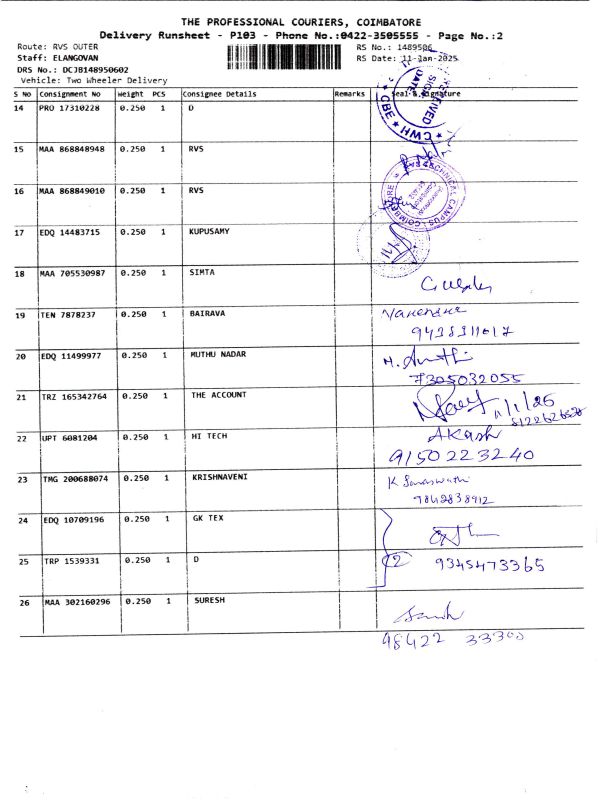 THE PROFESSIONAL COURIERS, COIMBATORE
Delivery Runsheet - P103 - Phone No.:0422-3505555 - Page No.:2
Route: RVS OUTER RS No.: 1489506
Staff: ELANGOVAN RS Date: 11-Jan-2025
DRS No.: DCJB148950602
Vehicle: Two Wheeler Delivery
S No Consignment No Weight PCS Consignee Details Remarks Seal & Signature
14 PRO 17310228 0.250 1 D
RECEIVED SIGN DATE CBE ★ CWH ★
15 MAA 868848948 0.250 1 RVS
16 MAA 868849010 0.250 1 RVS
TECHNICAL CAMPUS COIMBATORE
17 EDQ 14483715 0.250 1 KUPUSAMY
18 MAA 705530987 0.250 1 SIMTA
19 TEN 7878237 0.250 1 BAIRAVA
20 EDQ 11499977 0.250 1 MUTHU NADAR
7305032055
21 TRZ 165342764 0.250 1 THE ACCOUNT
11/1/25
22 UPT 6081204 0.250 1 HI TECH Akash
9150223240
23 TMG 200688074 0.250 1 KRISHNAVENI K Saraswathi
9842838912
24 EDQ 10709196 0.250 1 GK TEX
25 TRP 1539331 0.250 1 D 2 9345473365
26 MAA 302160296 0.250 1 SURESH
98422 33300